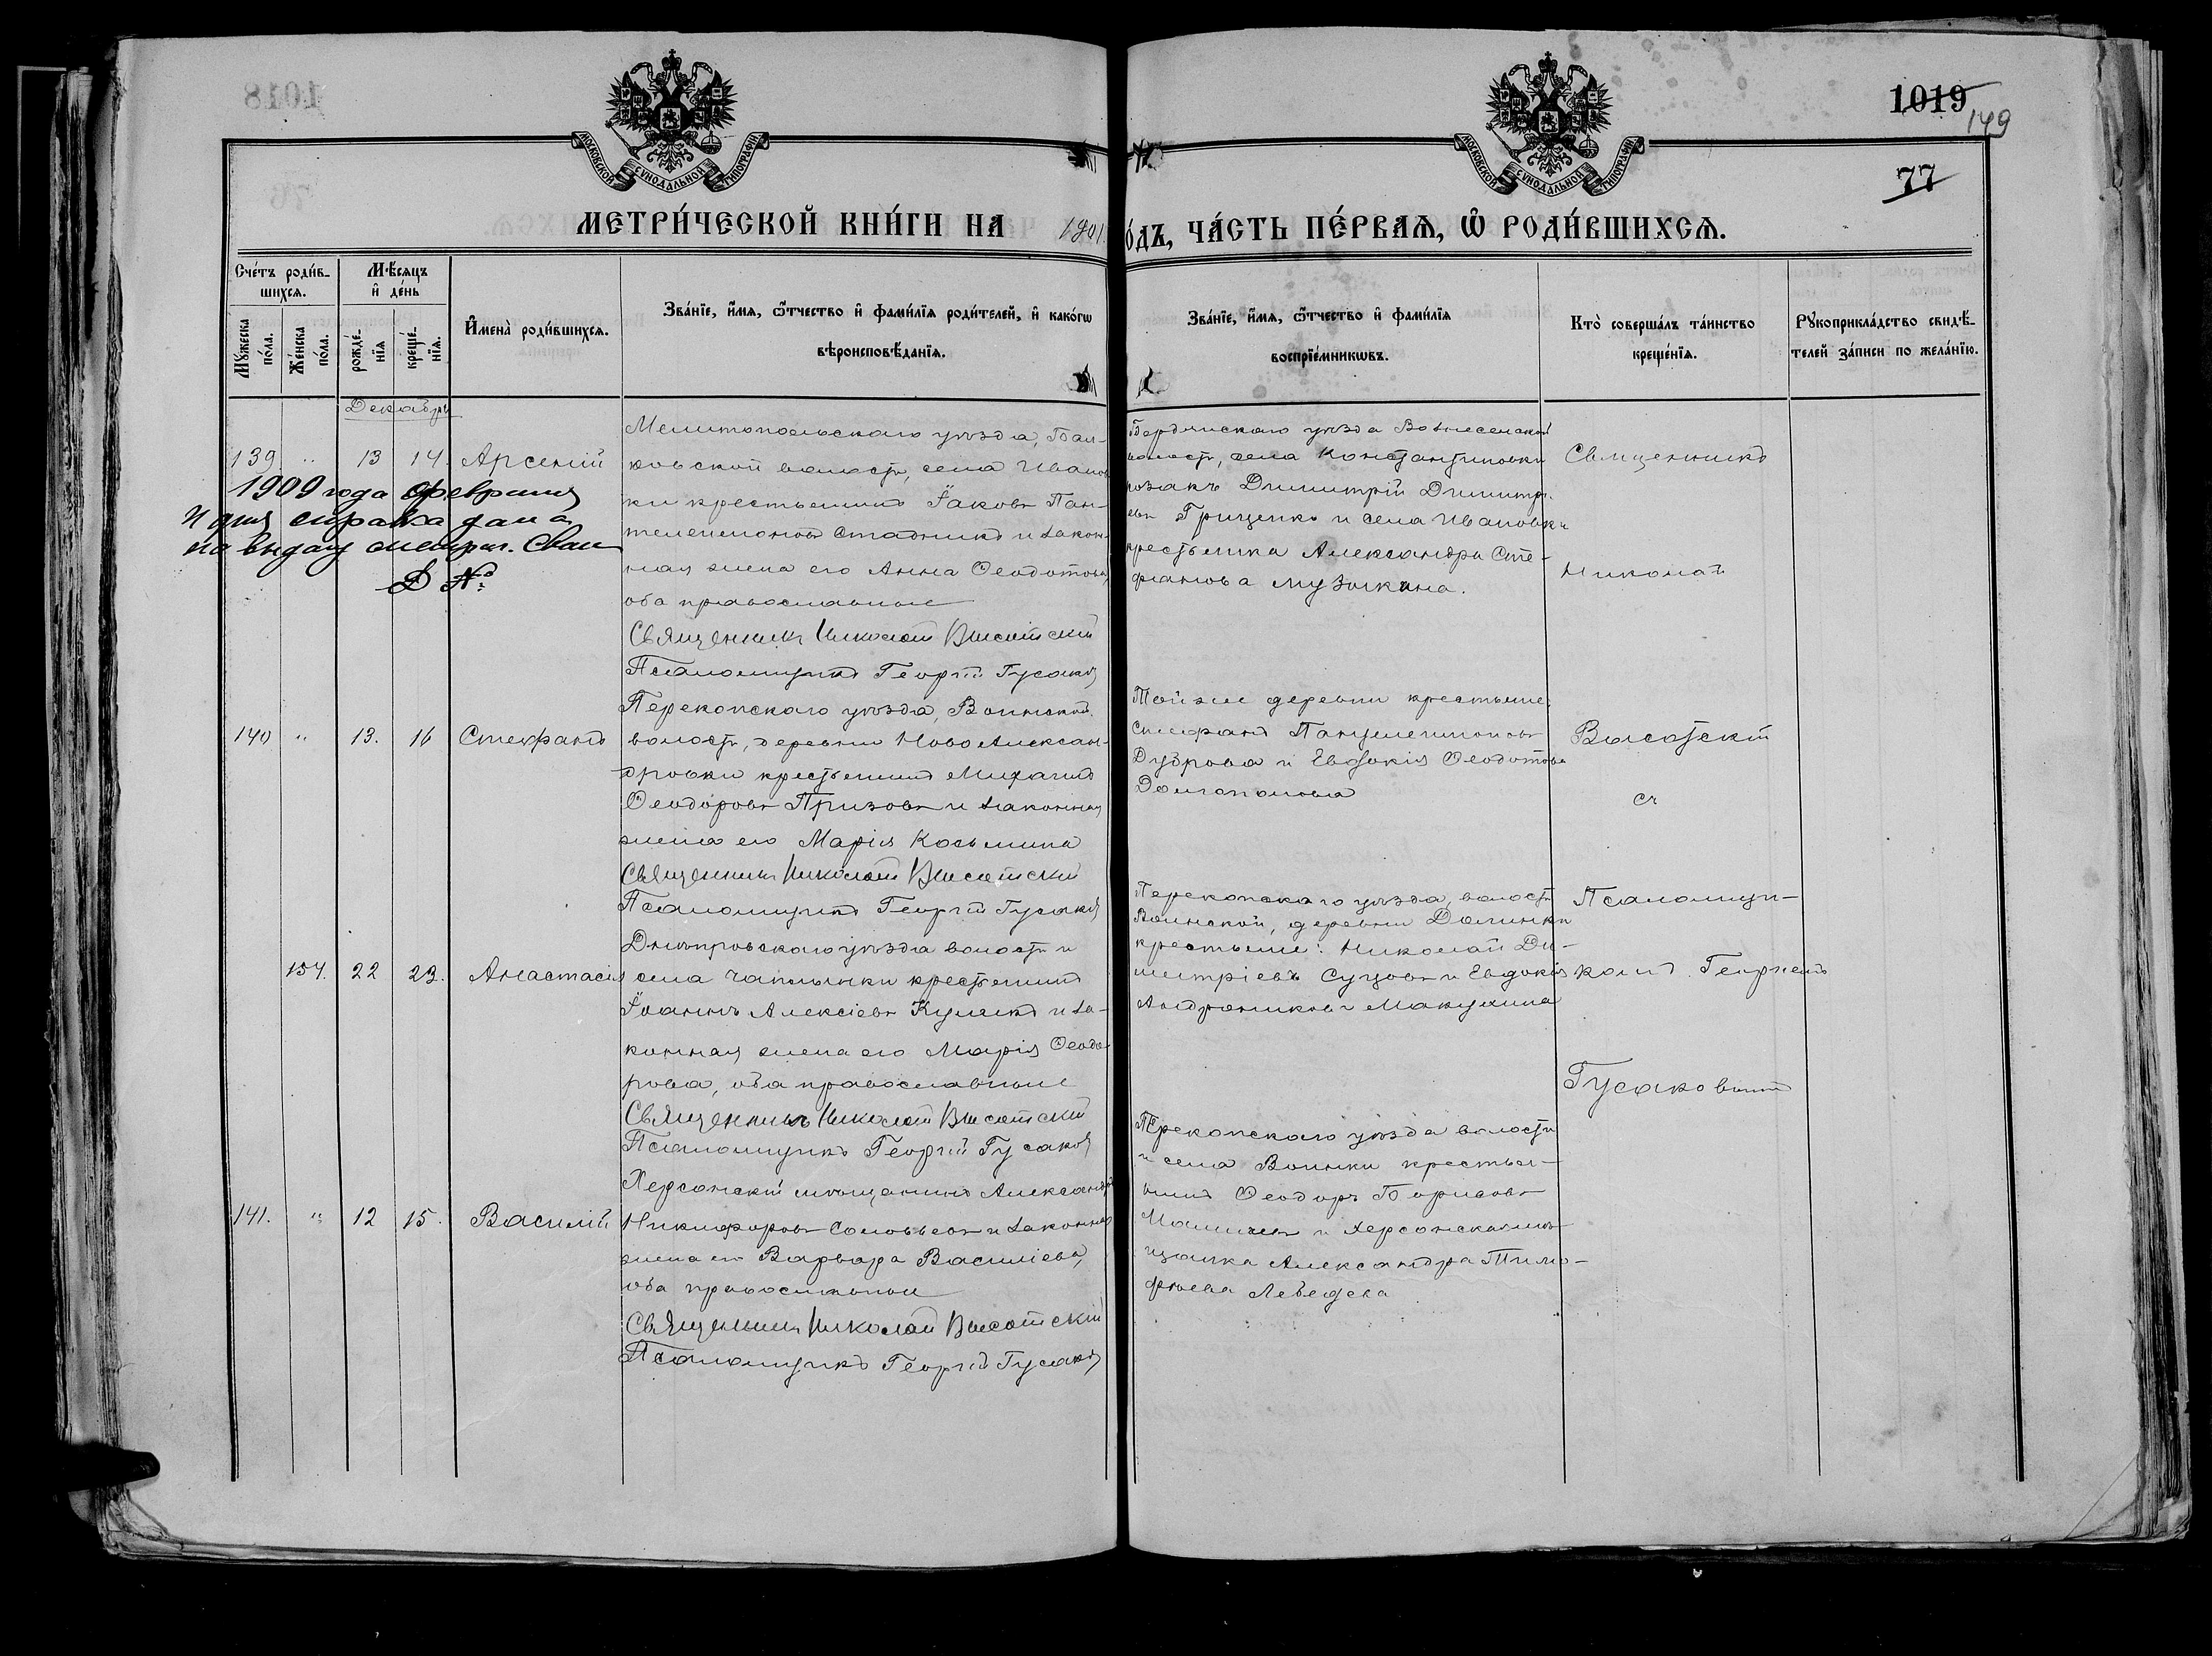 1018
1019
149
76
77
МОСКОВСКОЙ СѴНОДАЛЬНОЙ ТИПОГРАФІИ
МОСКОВСКОЙ СѴНОДАЛЬНОЙ ТИПОГРАФІИ
МЕТРИ́ЧЕСКОЙ КНИ́ГИ НА 1901
О́ДЪ, ЧА́СТЬ ПЕ́РВАѦ, Ѡ҆ РОДИ́ВШИХСѦ.
Сче́тъ роди́в-
шихсѧ.
Мꙋ́жеска
по́ла.
Же́нска
по́ла.
Мѣ́сяцъ
и҆ де́нь
рожде́-
нїѧ
креще́-
нїѧ.
И҆мена̀ роди́вшихсѧ.
Зва́нїе, и҆́мѧ, ѻ҆́тчество и҆ фами́лїѧ роди́телей, и҆ како́гѡ
вѣроисповѣ́данїѧ.
Зва́нїе, и҆́мѧ, ѻ҆́тчество и҆ фами́лїѧ
воспрїе́мникѡвъ.
Кто̀ соверша́лъ та́инство
креще́нїѧ.
Рꙋкоприкла́дство свидѣ́-
телей за́писи по жела́нїю.
Декабрь
139 " 13 14 Арсеній
1909 года февраля
дня справка дана
на выдачу метрич. Свид
№
Мелитопольскаго уѣзда, Бал-
ковской волости, села Иванов
ки крестьянинъ Іаковъ Пан-
телеимоновъ Стадникъ и закон-
ная жена его Анна Ѳеодотова,
оба православные
Священникъ Николай Высотскій
Псаломщикъ Георгій Гусаков
Бердянскаго уѣзда Вознесенской
волости, села Константиновки
козакъ Димитрій Димитрі-
евъ Гриценко и села Ивановки
крестьянка Александра Сте-
фанова Музыкина.
Священникъ
Николай
Высотскій
съ
Псаломщи-
комъ Георгіемъ
Гусаковымъ
140 " 13. 16 Стефанъ
Перекопскаго уѣзда, Воинской
волости, деревни Ново Алексан-
дровки крестьянинъ Михаилъ
Ѳеодоровъ Призовъ и законная
жена его Марія Косьмина
Священникъ Николай Высотскій
Псаломщикъ Георгій Гусаков
Той же деревни крестьяне:
Стефанъ Пантелеимоновъ
Дуброва и Евдокія Ѳеодотова
Долгополова
154. 22 23. Анастасія
Днѣпровскаго уѣзда волости и
села Чаплинки крестьянинъ
Іоаннъ Алексіевъ Кулишъ и за-
конная жена его Марія Ѳеодо-
рова, оба православные
Священникъ Николай Высотскій
Псаломщикъ Георгій Гусаков
Перекопскаго уѣзда, волости
Воинской, деревни Долинки
крестьяне: Николай Ди-
митріевъ Суцовъ и Евдокія
Андроникова Макухина
141. " 12 15. Василій
Херсонскій мѣщанинъ Александръ
Никифоровъ Соловьевъ и законная
жена его Варвара Василіева,
оба православные
Священникъ Николай Высотскій
Псаломщикъ Георгій Гусаков
Перекопскаго уѣзда волости
и села Воинки крестья-
нинъ Ѳеодоръ Борисовъ
и Херсонская мѣ-
щанка Александра Тимо-
фѣева Лебедева